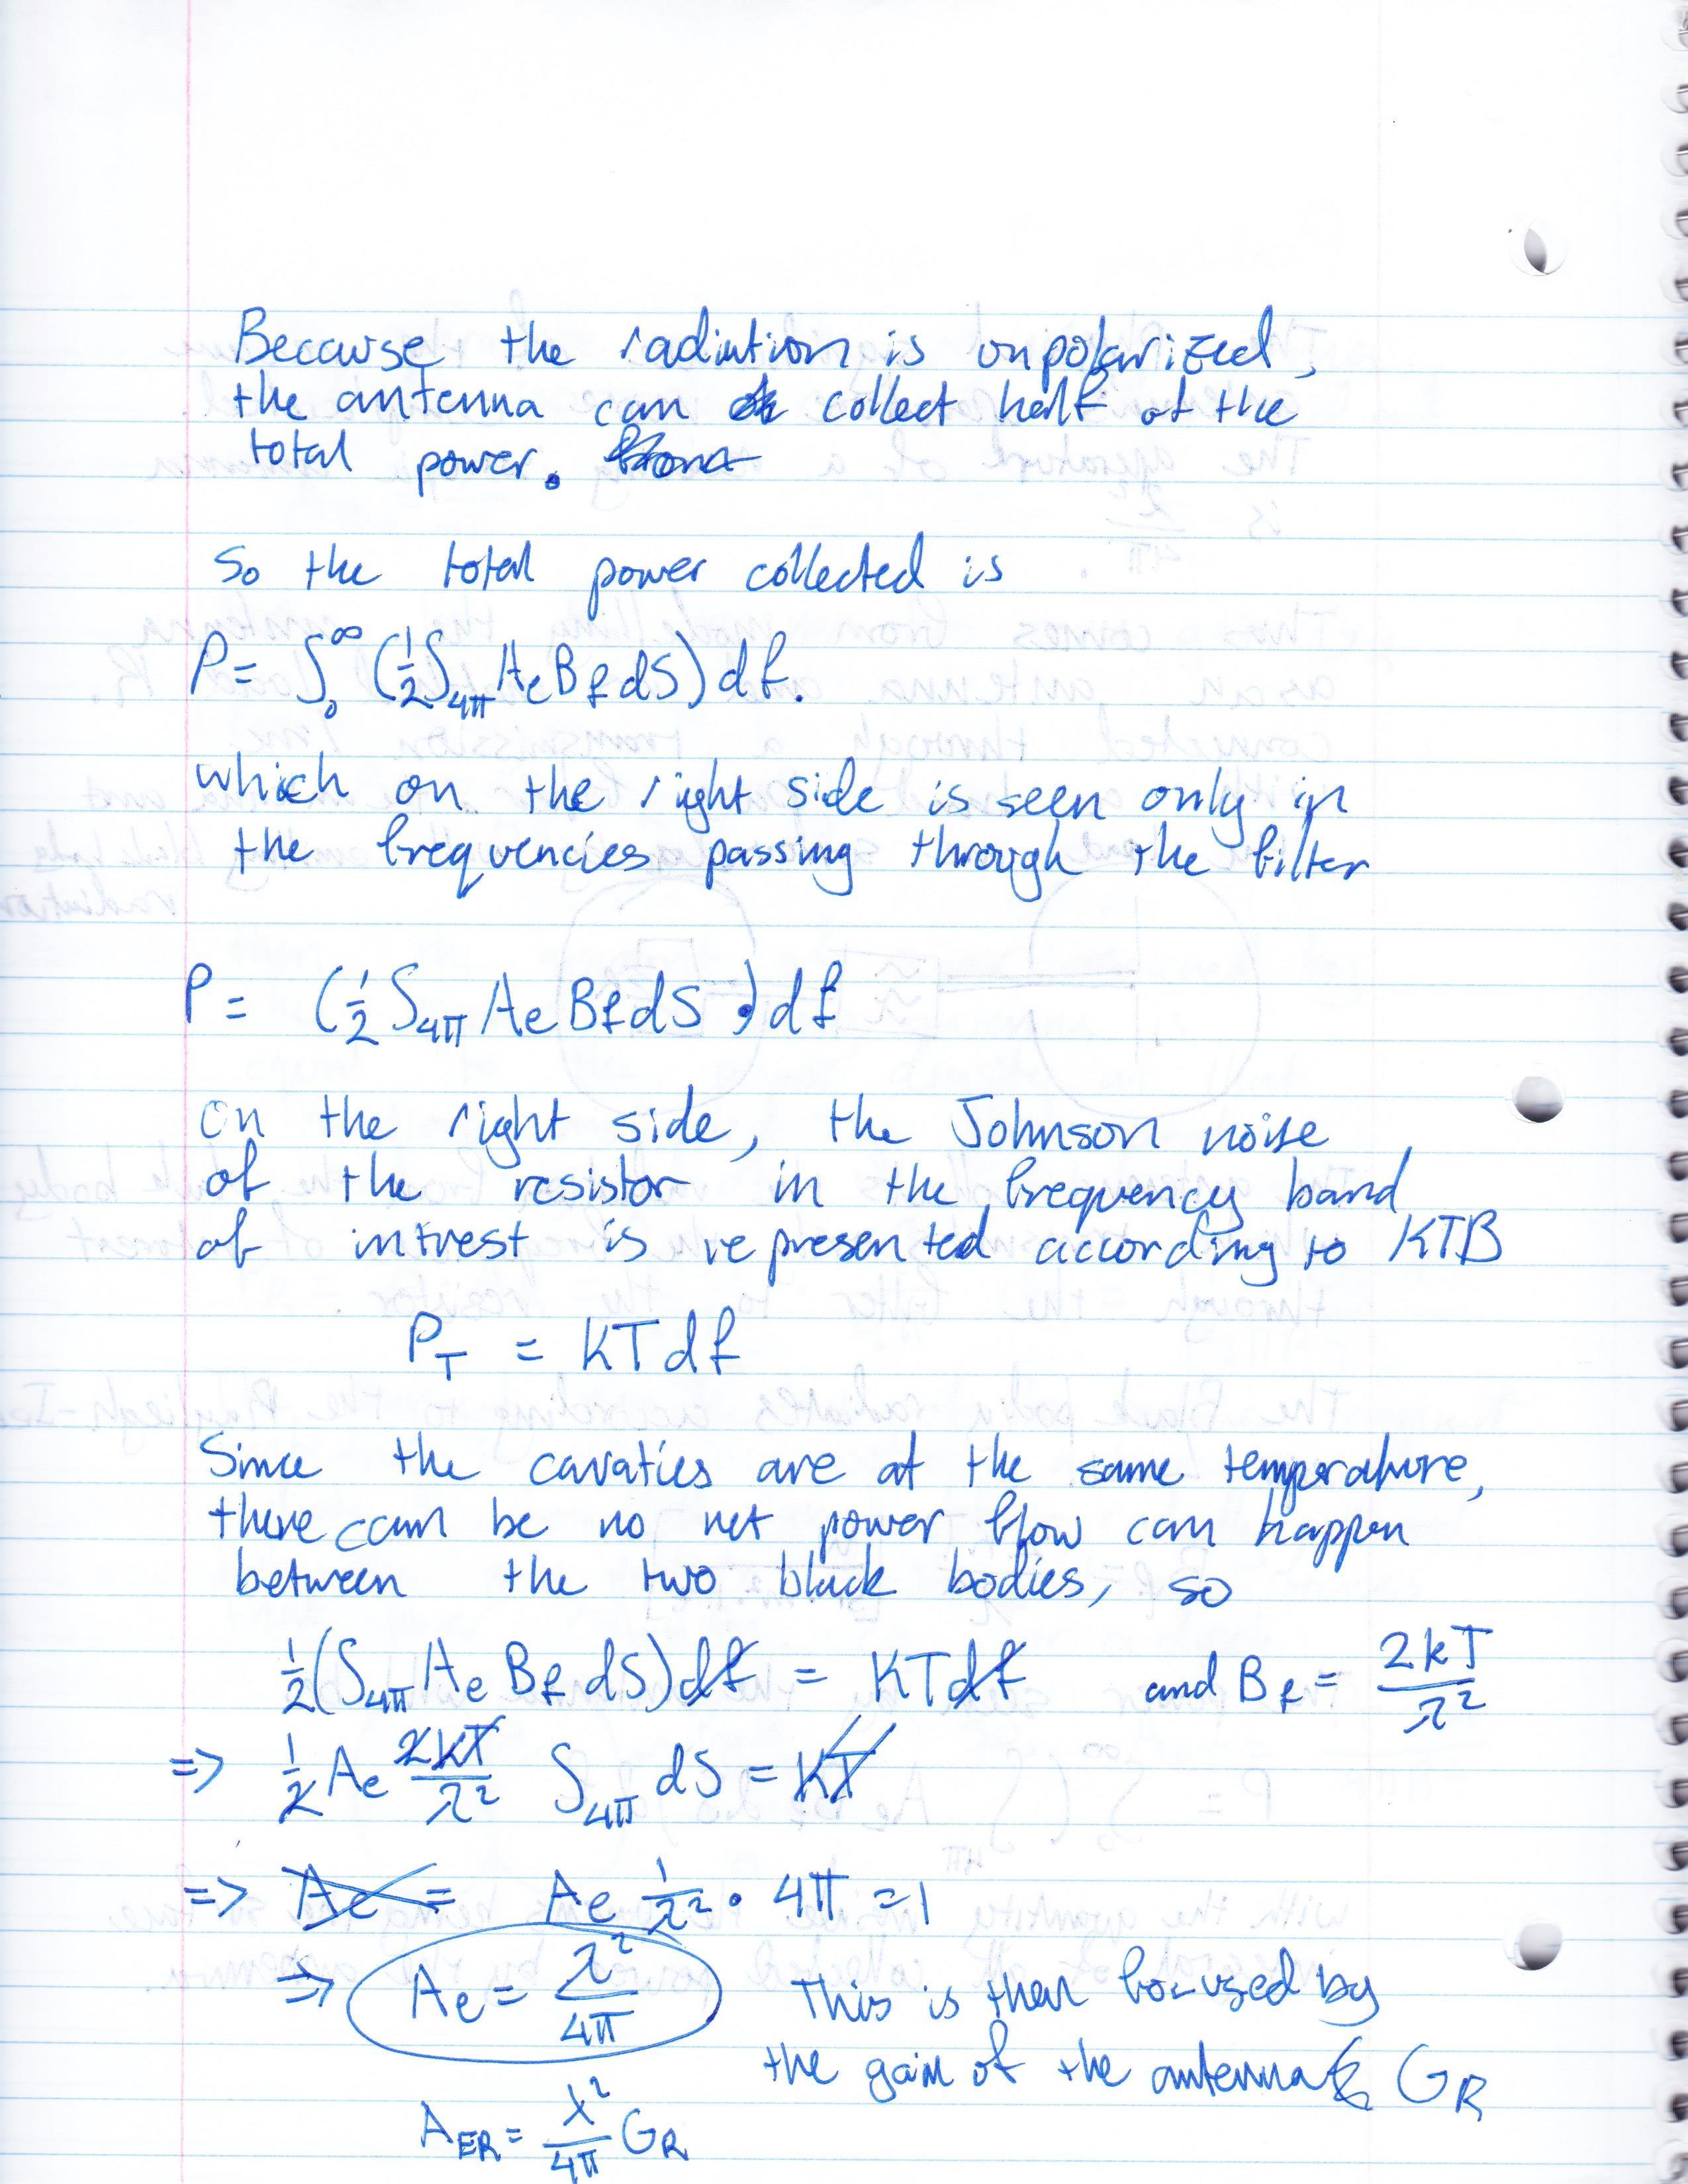 Because the radiation is unpolarized,
the antenna can collect half of the
total power.
So the total power collected is
P = ∫₀^∞ (½∫₄π Ae Bf dS) df.
which on the right side is seen only in
the frequencies passing through the filter
P = (½ ∫₄π Ae Bf dS) df
On the right side, the Johnson noise
of the resistor in the frequency band
of intrest is represented according to KTB
P_T = KTdf
Since the cavaties are at the same temperature,
there can be no net power flow can happen
between the two black bodies, so
½(∫₄π Ae Bf dS)df = KTdf and Bf = 2kT/λ²
=> ½ Ae 2KT/λ² ∫₄π dS = KT
=> Ae = Ae 1/λ² • 4π = 1
=> Ae = λ²/4π This is then focused by
the gain of the antenna G_R
A_ER = λ²/4π G_R